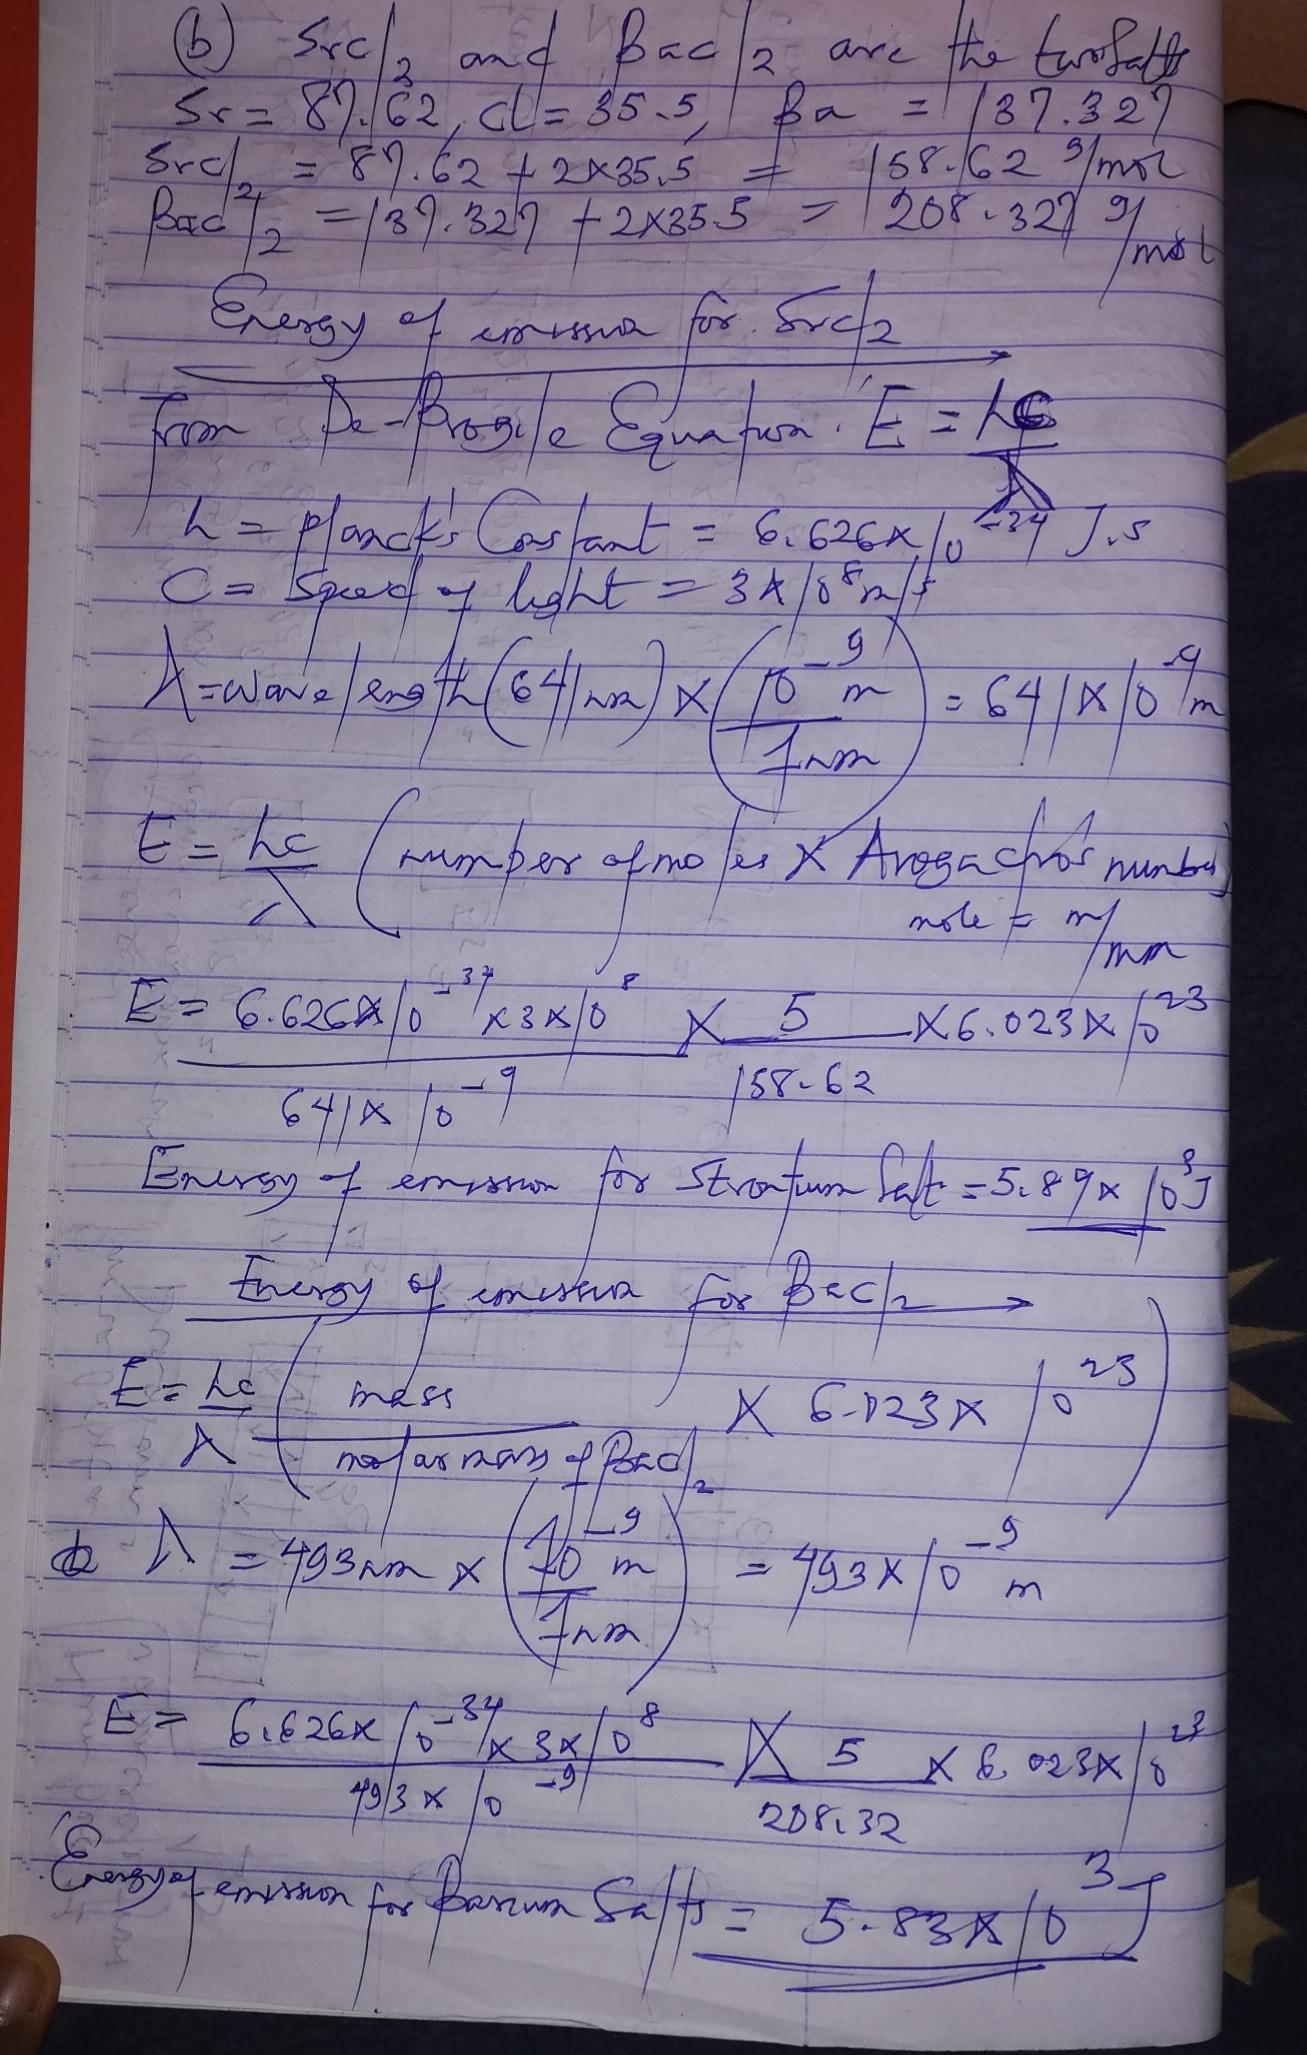 (b) SrCl2 and BaCl2 are the two Salts
Sr = 87.62, Cl = 35.5, Ba = 137.327
SrCl2 = 87.62 + 2x35.5 = 158.62 g/mol
BaCl2 = 137.327 + 2x35.5 = 208.327 g/mol
Energy of emission for SrCl2
from De-Brogile Equation. E = hc/λ
h = planck's Constant = 6.626x10^-34 J.s
C = Speed of light = 3x10^8 m/s
λ = wavelength (641nm) x (10^-9 m / 1nm) = 641x10^-9 m
E = hc/λ (number of moles x Avogadros number)
mole = m/mm
E = 6.626x10^-34 x 3x10^8 / 641x10^-9 x 5/158.62 x 6.023x10^23
Energy of emission for Strontium Salt = 5.89x10^3 J
Energy of emission for BaCl2
E = hc/λ (mass / molar mass of BaCl2 x 6.023x10^23)
λ = 493nm x (10^-9 m / 1nm) = 493x10^-9 m
E = 6.626x10^-34 x 3x10^8 / 493x10^-9 x 5/208.32 x 6.023x10^23
Energy of emission for Barium Salts = 5.83x10^3 J